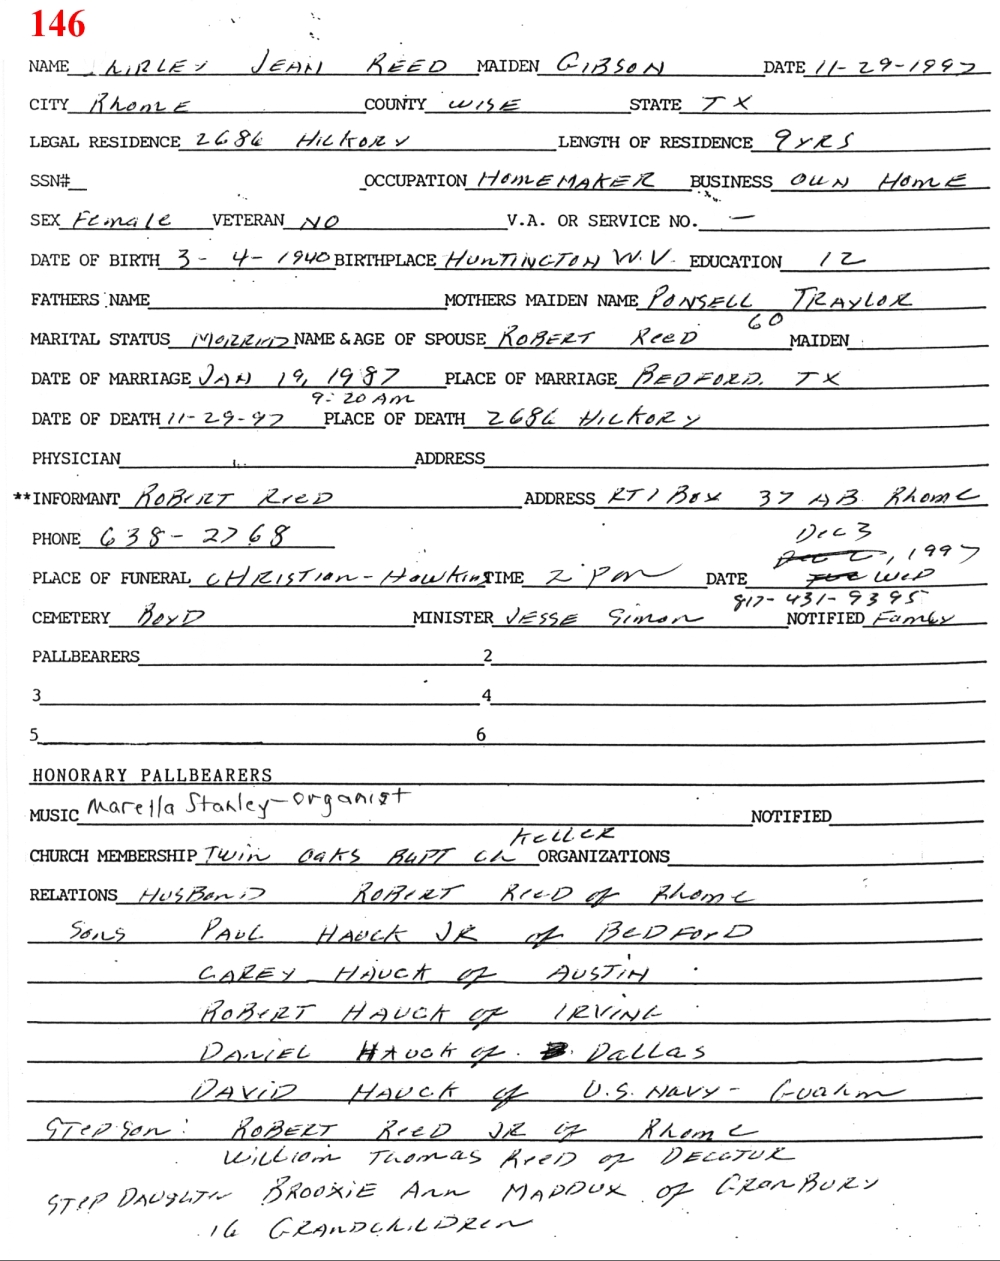 146
NAME LIRLEY JEAN REED MAIDEN GIBSON DATE 11-29-1997
CITY Rhome COUNTY WISE STATE TX
LEGAL RESIDENCE 2686 HICKORY LENGTH OF RESIDENCE 9 YRS
SSN# OCCUPATION HOMEMAKER BUSINESS OWN HOME
SEX Female VETERAN NO V.A. OR SERVICE NO. —
DATE OF BIRTH 3-4-1940 BIRTHPLACE HUNTINGTON W.V. EDUCATION 12
FATHERS NAME MOTHERS MAIDEN NAME PONSELL TRAYLOR
60
MARITAL STATUS MARRIED NAME & AGE OF SPOUSE ROBERT REED MAIDEN
DATE OF MARRIAGE JAN 19, 1987 PLACE OF MARRIAGE BEDFORD. TX
9:20 AM
DATE OF DEATH 11-29-97 PLACE OF DEATH 2686 HICKORY
PHYSICIAN ADDRESS
**INFORMANT ROBERT REED ADDRESS RT 1 BOX 37 AB Rhome
PHONE 638-2768 Dec 3
, 1997
PLACE OF FUNERAL CHRISTIAN-HAWKINS TIME 2 PM DATE TUE WED
817-431-9395
CEMETERY BOYD MINISTER JESSE Simon NOTIFIED Family
PALLBEARERS 2
3 4
5 6
HONORARY PALLBEARERS
MUSIC Marella Stanley-organist NOTIFIED
KELLER
CHURCH MEMBERSHIP Twin OAKS BAPT CH ORGANIZATIONS
RELATIONS HUSBAND ROBERT REED of Rhome
Sons PAUL HAUCK JR of BEDFORD
CAREY HAUCK of AUSTIN
ROBERT HAUCK of IRVING
DANIEL HAUCK of Dallas
DAVID HAUCK of U.S. NAVY - Guahm
STEPSON: ROBERT REED JR of Rhome
William THOMAS REED of DECATUR
STEP DAUGHTR BROOXIE Ann MADDUX of GRANBURY
16 GRANDCHILDREN